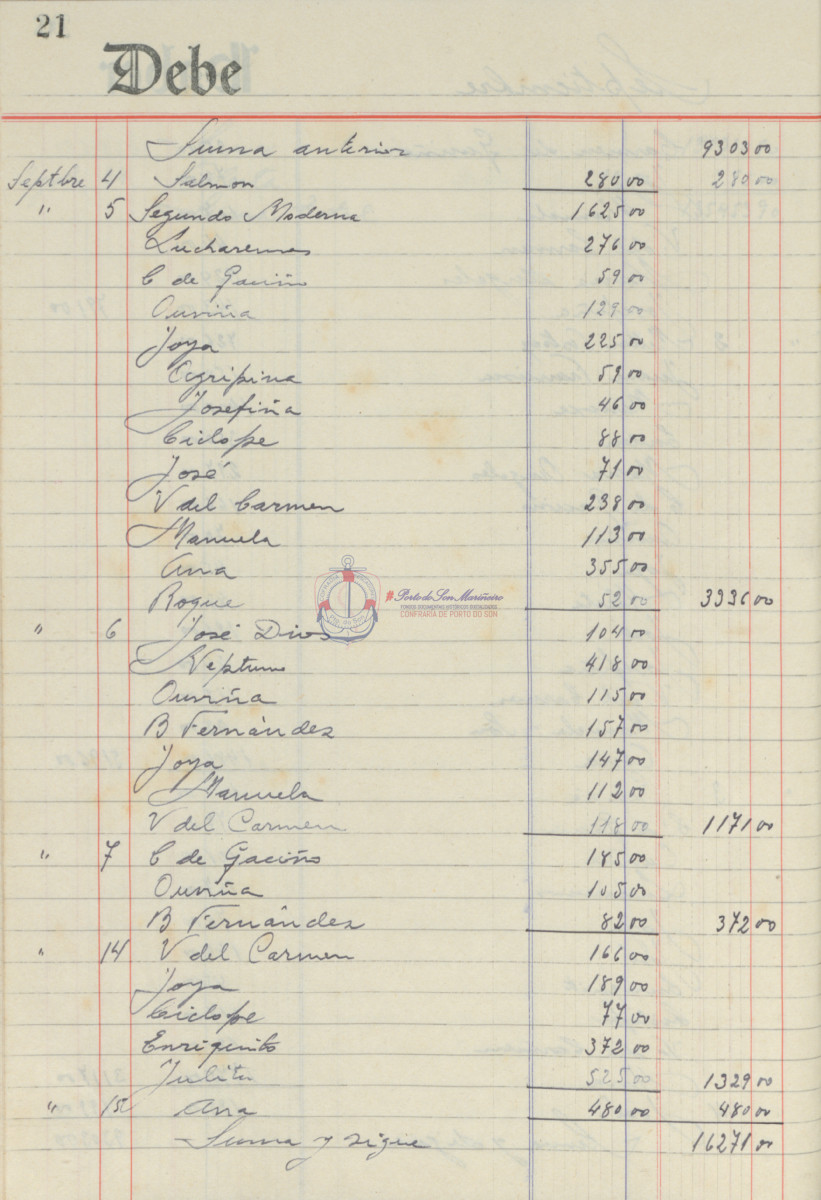 21
Debe
Suma anterior 9303 00
Septbre 4 Salmon 280 00 280 00
" 5 Segundo Moderna 1625 00
Lucharemos 276 00
C de Gaciño 59 00
Ouviña 129 00
Joya 225 00
Agripina 59 00
Josefiña 46 00
Ciclope 88 00
José 71 00
V del Carmen 238 00
Manuela 113 00
Ana 355 00
Roque 52 00 3336 00
#Porto do Son Mariñeiro
CONFRARÍA DE PORTO DO SON
" 6 José Dios 104 00
Neptuno 418 00
Ouviña 115 00
B Fernández 157 00
Joya 147 00
Manuela 112 00
V del Carmen 118 00 1171 00
" 7 C de Gaciño 185 00
Ouviña 105 00
B Fernández 82 00 372 00
" 14 V del Carmen 166 00
Joya 189 00
Ciclope 77 00
Enriquito 372 00
Julita 525 00 1329 00
" 15 Ana 480 00 480 00
Suma y sigue 16271 00